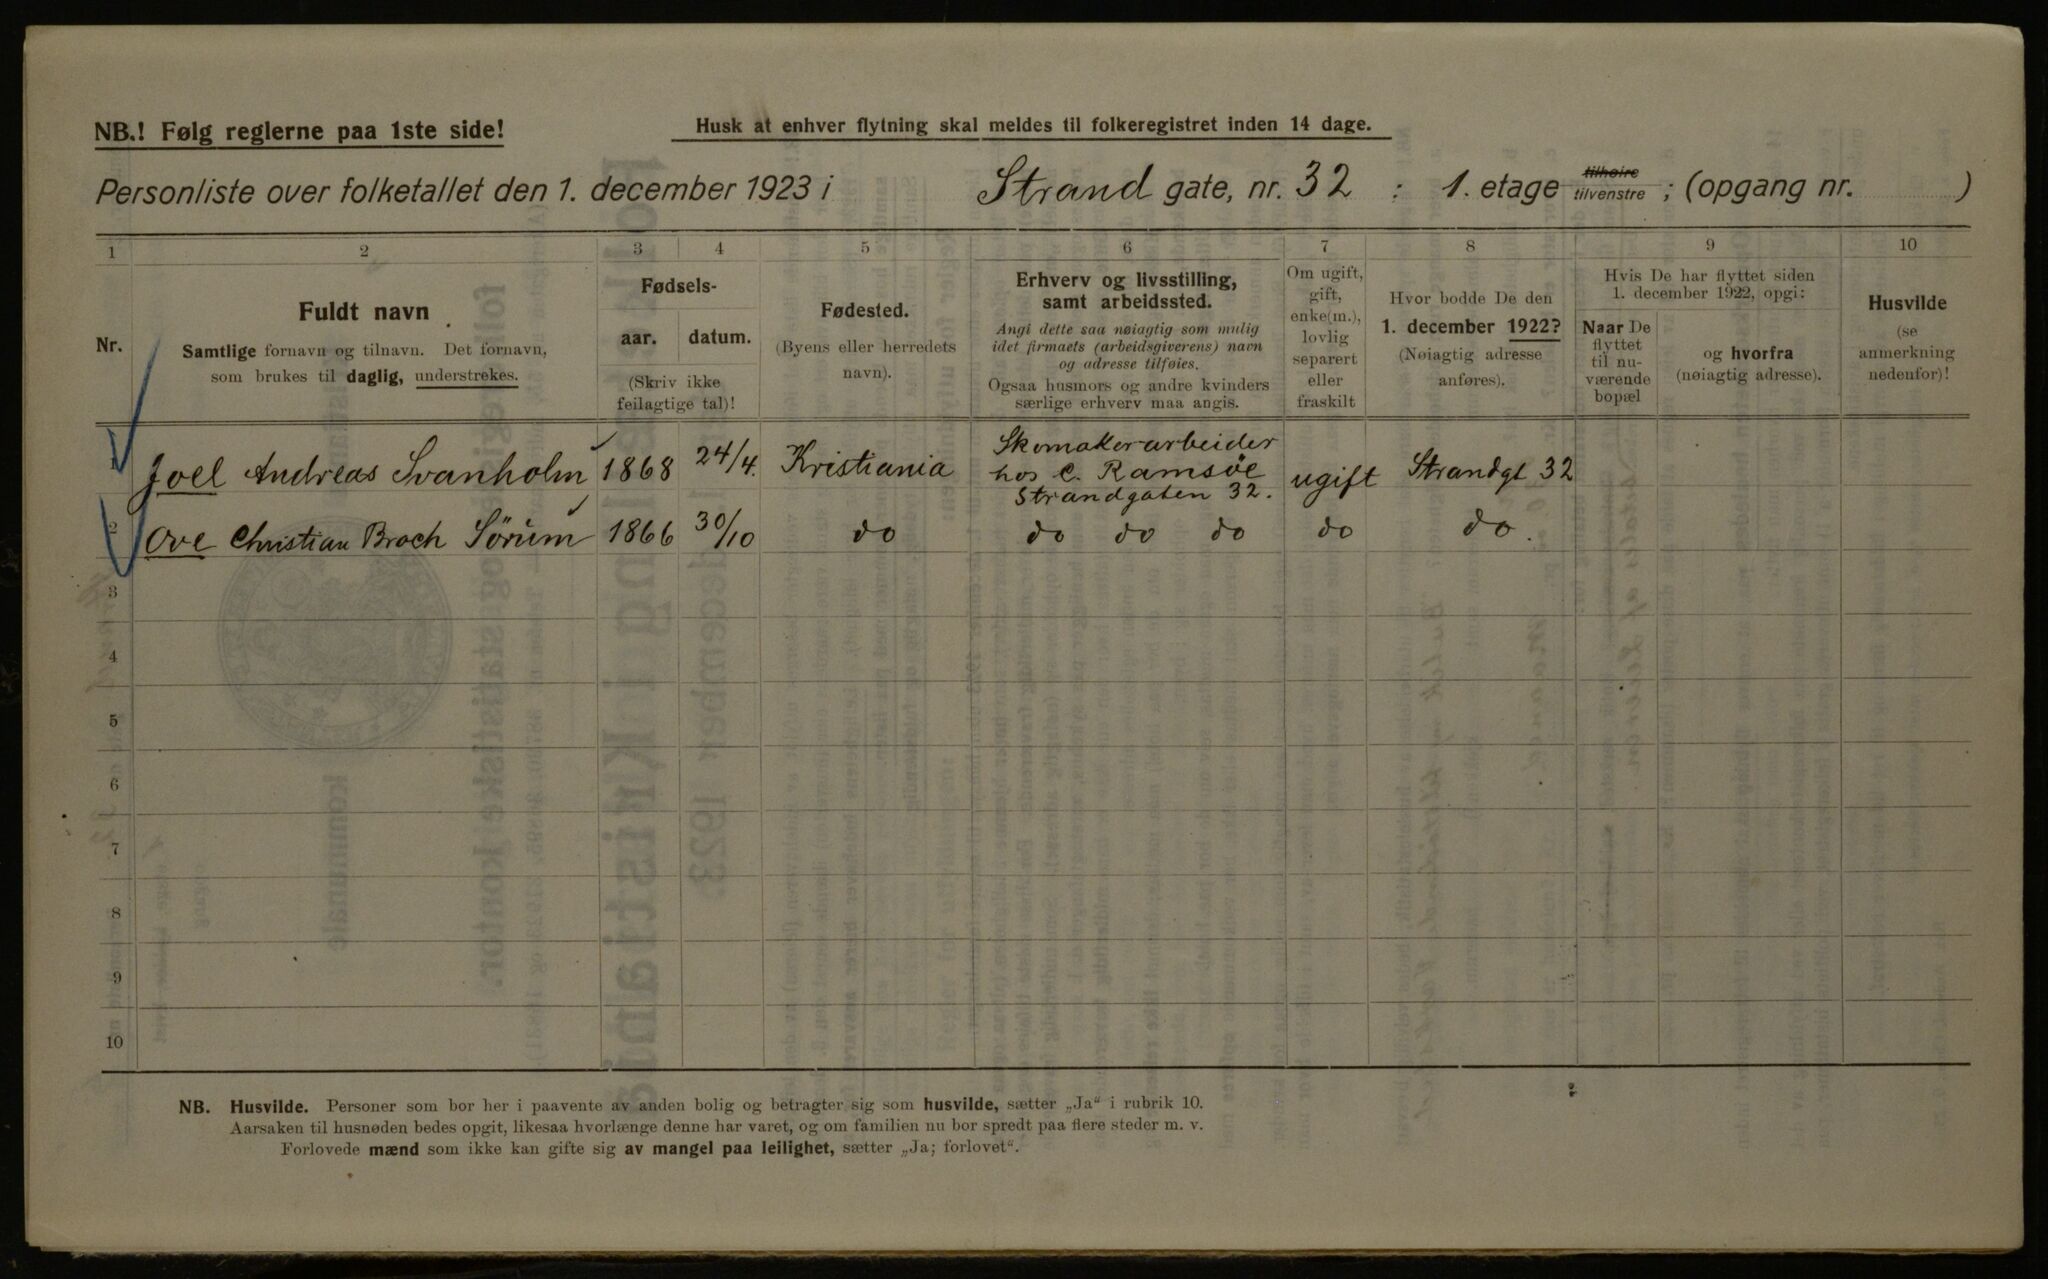 NB.! Følg reglerne paa 1ste side!
Husk at enhver flytning skal meldes til folkeregistret inden 14 dage.
Personliste over folketallet den 1. december 1923 i Strand gate, nr. 32 : 1. etage tilhøire tilvenstre ; (opgang nr. )
1 2 3 4 5 6 7 8 9 10
Nr.
Fuldt navn
Samtlige fornavn og tilnavn. Det fornavn,
som brukes til daglig, understrekes.
Fødsels-
aar. datum.
(Skriv ikke
feilagtige tal)!
Fødested.
(Byens eller herredets
navn).
Erhverv og livsstilling,
samt arbeidssted.
Angi dette saa nøiagtig som mulig
idet firmaets (arbeidsgiverens) navn
og adresse tilføies.
Ogsaa husmors og andre kvinders
særlige erhverv maa angis.
Om ugift,
gift,
enke(m.),
lovlig
separert
eller
fraskilt
Hvor bodde De den
1. december 1922?
(Nøiagtig adresse
anføres).
Hvis De har flyttet siden
1. december 1922, opgi:
Naar De
flyttet
til nu-
værende
bopæl
og hvorfra
(nøiagtig adresse).
Husvilde
(se
anmerkning
nedenfor)!
1 Joel Andreas Svanholm 1868 24/4. Kristiania Skomakerarbeider
hos C. Ramsøe
Strandgaten 32. ugift Strandgt 32
2 Ove Christian Broch Sørum 1866 30/10 do do do do do do.
3
4
5
6
7
8
9
10
NB. Husvilde. Personer som bor her i paavente av anden bolig og betragter sig som husvilde, sætter „Ja" i rubrik 10.
Aarsaken til husnøden bedes opgit, likesaa hvorlænge denne har varet, og om familien nu bor spredt paa flere steder m. v.
Forlovede mænd som ikke kan gifte sig av mangel paa leilighet, sætter „Ja; forlovet".